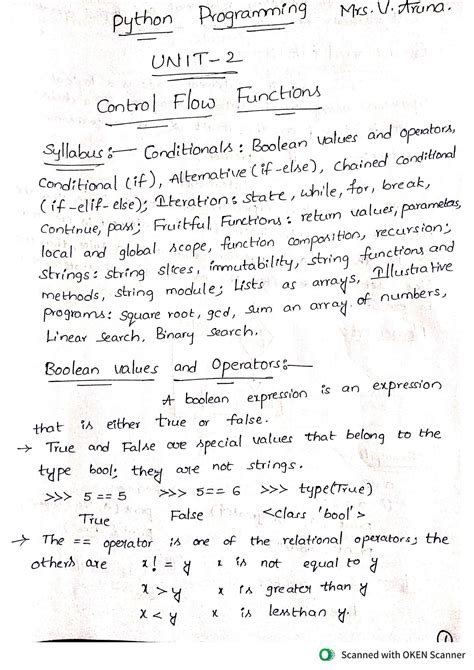 Python Programming Mrs. V. Aruna.
UNIT-2
Control Flow Functions
Syllabus:- Conditionals: Boolean values and operators,
Conditional (if), Alternative (if-else), Chained conditional
(if-elif-else); Iteration: state, while, for, break,
Continue, pass; Fruitful Functions: return values, parameters,
local and global scope, function composition, recursion;
strings: string slices, immutability, string functions and
methods, string module; Lists as arrays, Illustrative
programs: square root, gcd, sum an array of numbers,
Linear search, Binary search.
Boolean values and Operators:-
A boolean expression is an expression
that is either true or false.
→ True and False are special values that belong to the
type bool; they are not strings.
>>> 5 == 5 >>> 5 == 6 >>> type(True)
True False <class 'bool'>
→ The == operator is one of the relational operators; the
others are x != y x is not equal to y
x > y x is greater than y
x < y x is lessthan y.
1
Scanned with OKEN Scanner